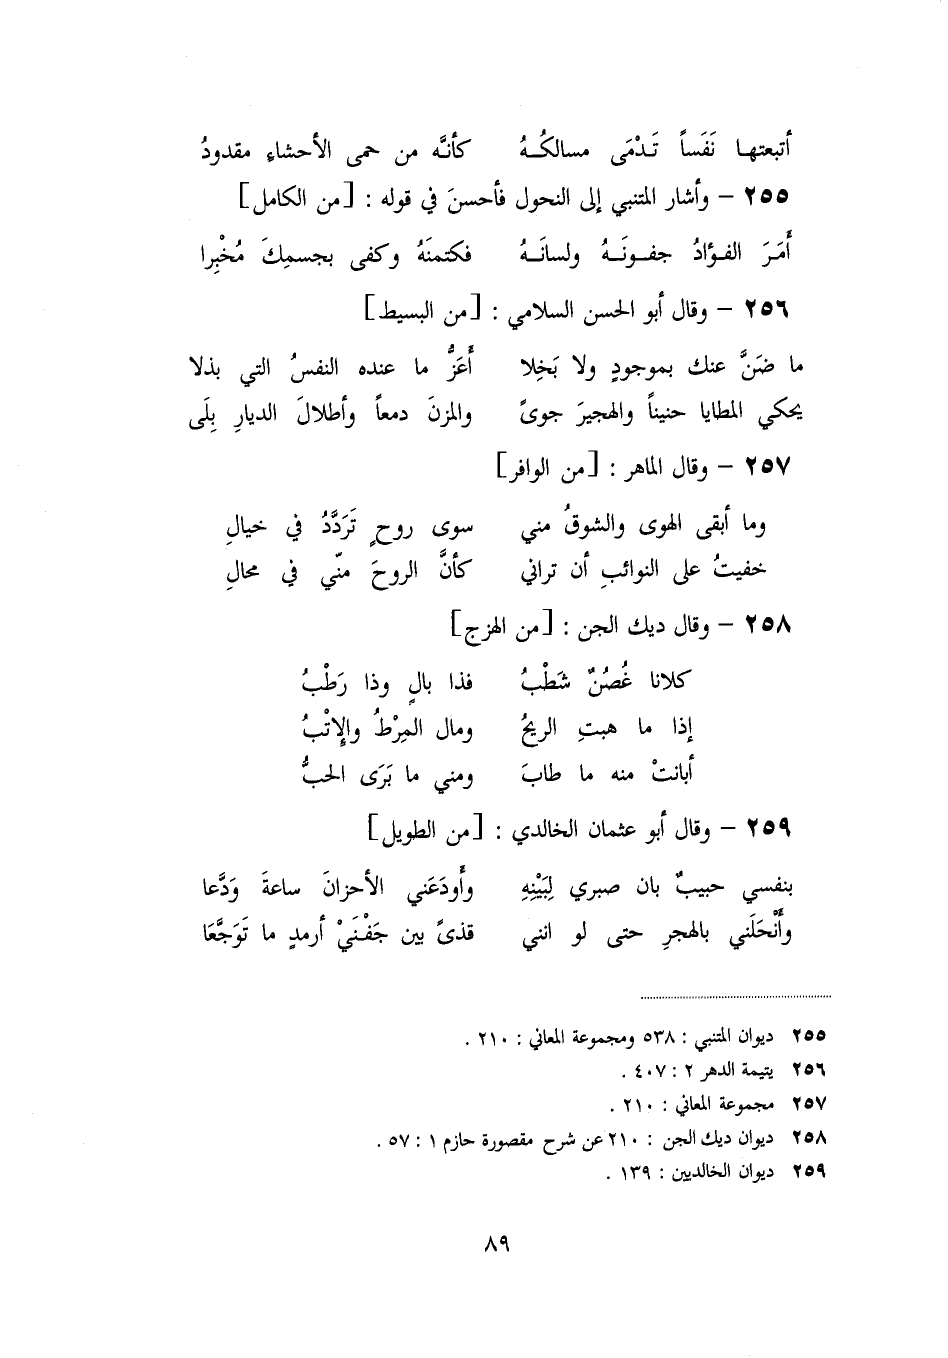 أتبعتها نَفَساً تَدْمَى مسالكُهُ كأنَّه من حمى الأحشاءِ مقدودُ
٢٥٥ – وأشار المتنبي إلى النحول فأحسنَ في قوله : [من الكامل]
أَمَرَ الفؤادُ جفونَهُ ولسانَهُ فكتمنَهُ وكفى بجسمِكَ مُخْبِرا
٢٥٦ – وقال أبو الحسن السلامي : [من البسيط]
ما ضَنَّ عنك بموجودٍ ولا بَخِلا أَعَزُّ ما عنده النفسُ التي بذلا
يحكي المطايا حنيناً والهجيرَ جوىً والمزنَ دمعاً وأطلالَ الديارِ بِلَى
٢٥٧ – وقال الماهر : [من الوافر]
وما أبقى الهوى والشوقُ مني سوى روحٍ تَرَدَّدُ في خيالِ
خفيتُ على النوائبِ أن تراني كأنَّ الروحَ منّي في محالِ
٢٥٨ – وقال ديك الجن : [من الهزج]
كلانا غُصُنٌ شَطْبُ فذا بالٍ وذا رَطْبُ
إذا ما هبتِ الريحُ ومال المِرْطُ والإِتْبُ
أبانتْ منه ما طابَ ومني ما بَرَى الحبُّ
٢٥٩ – وقال أبو عثمان الخالدي : [من الطويل]
بنفسي حبيبٌ بان صبري لِبَيْنِهِ وأَودَعَني الأحزانَ ساعةَ وَدَّعا
وأَنْحَلَني بالهجرِ حتى لو انني قذىً بين جَفْنَيْ أرمدٍ ما تَوَجَّعَا
٢٥٥ ديوان المتنبي : ٥٣٨ ومجموعة المعاني : ٢١٠ .
٢٥٦ يتيمة الدهر ٢ : ٤٠٧ .
٢٥٧ مجموعة المعاني : ٢١٠ .
٢٥٨ ديوان ديك الجن : ٢١٠ عن شرح مقصورة حازم ١ : ٥٧ .
٢٥٩ ديوان الخالديين : ١٣٩ .
٨٩